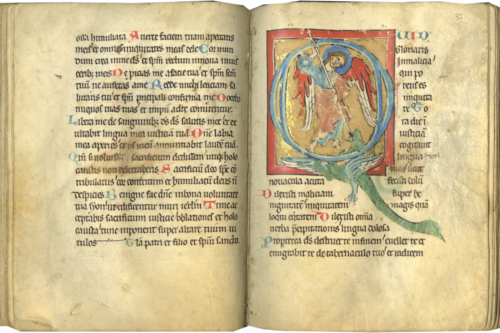 ossa humiliata A uerte faciem tuam a peccatis
meis et omnes iniquitates meas dele C or mun
dum crea in me ds et spm rectum innoua in uisc
eribz meis N e proicias me a facie tua et spm scm
tuu ne auferas a me R edde michi leticiam sa
lutaris tui et spu principali confirma me D oceo
iniquos uias tuas et impii ad te conuertentur
Libera me de sanguinibz ds ds salutis mee et ex
ultabit lingua mea iusticiam tua D ne labia
mea aperies et os meu annuntiabit laude tua
Qm si uoluisses sacrificium dedissem utiqz holo
caustis non delectaberis S acrificiu deo spc con
tribulatus cor contritum et humiliatum deus n
despicies B enigne fac dne in bona uoluntate
tua syon ut edificentur muri ierlm T unc ac
ceptabis sacrificium iusticie oblationes et holo
causta tunc imponent super altare tuum ui
tulos G la patri et filio et spui sancto
Q UID
Gloriaris
in malicia
qui po
tens es
iniquita
te T o
ta die in
iusticia
cogitauit
lingua
tua sicut
nouacula acuta fecisti dolu
Dilexisti super be
maliciam magis qua
loqui equitatem Dilexisti omnia
uerba precipitationis lingua dolosa
Propterea ds destruet te in finem euellet te et
emigrabit te de tabernaculo tuo et radicem